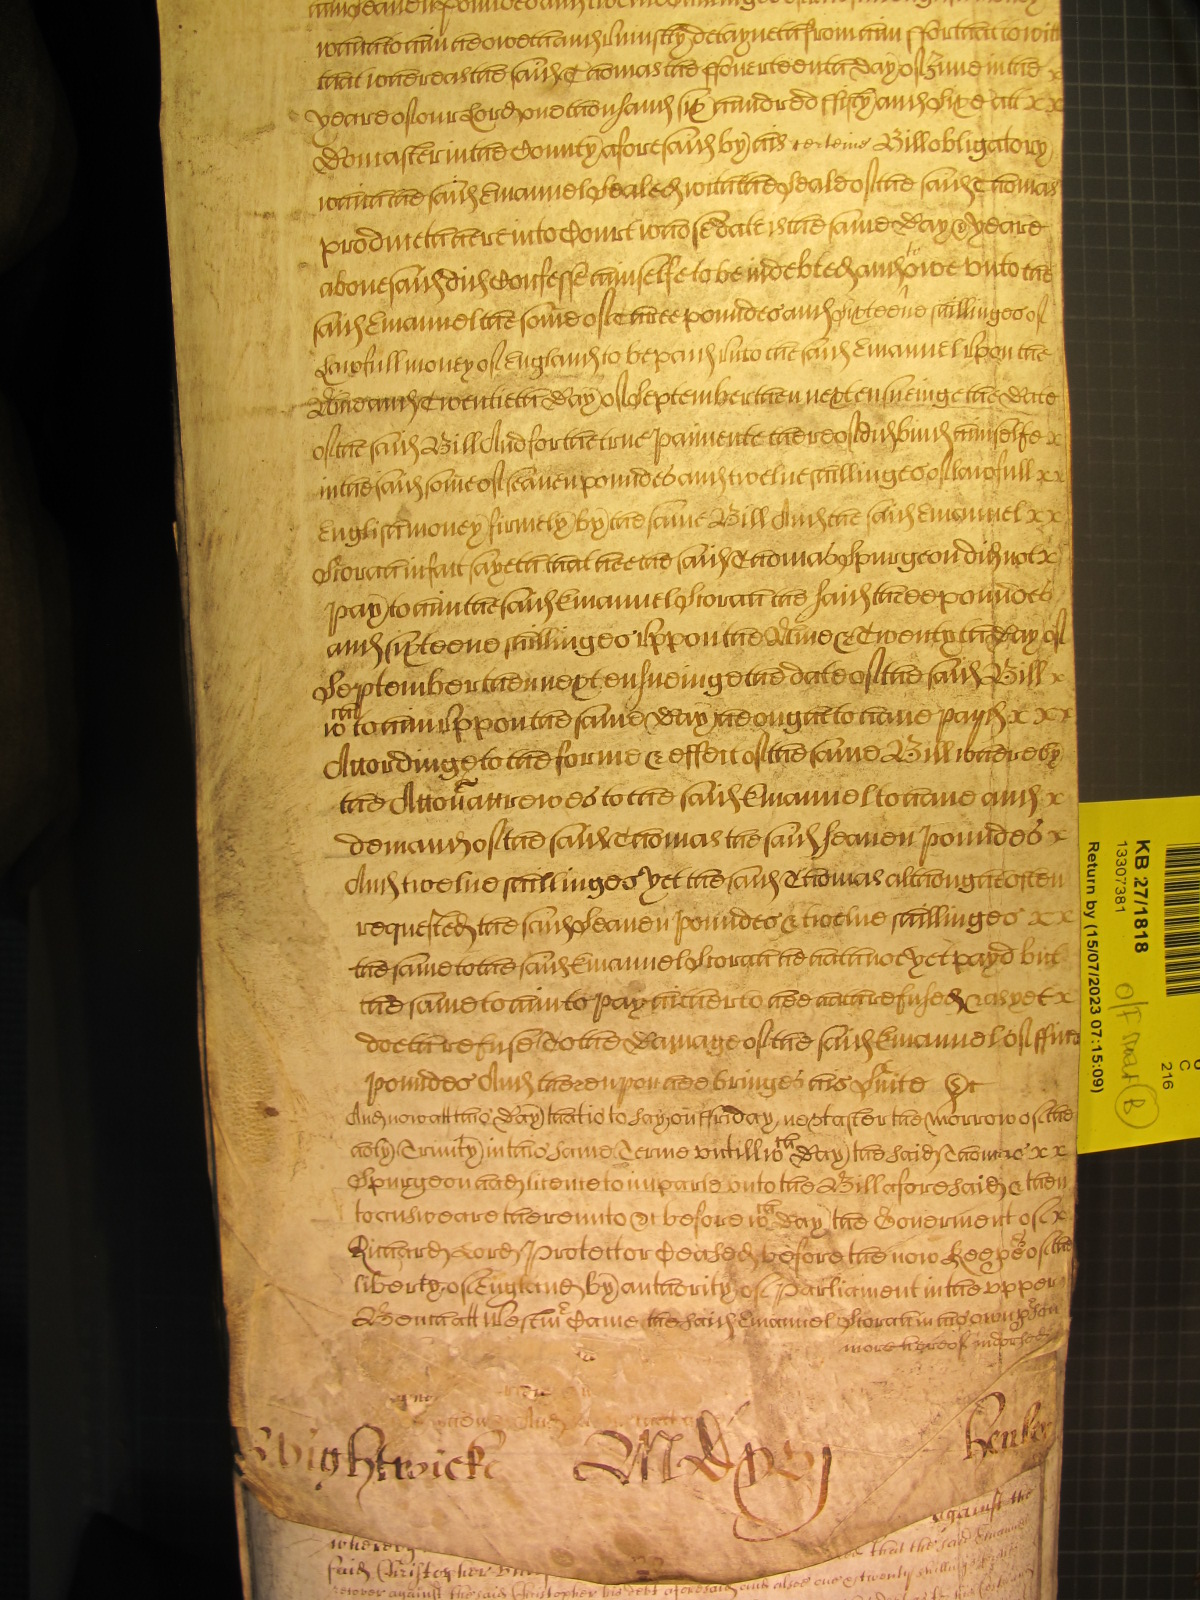 seaven poundes and twelve shillinges of lawfull money
which to him he oweth and uniustly detayneth from him ffor that to witt
that whereas the said Thomas the ffouerteenth Day of June in the x
yeare of our Lord one thousand six hundred fifty and sixe att x x
Domaster in the County aforesaid by his certeine Bill obligatory
which the said Emanuel Sealed with the Seale of the said Thomas
produceth here into Court whose date is the same Day & yeare
abovesaid did Confesse himselfe to be indebted and to owe unto the
said Emanuel the some of Three poundes and sixteene shillinges of
Lawfull money of England to be paid unto the said Emanuel upon the
Nine and Twentieth Day of September then next ensueinge the Date
of the said Bill And for the true paimente thereof did bind himselfe x
in the said some of seaven poundes and twelve shillinges of lawfull x x
English money firmely by the same Bill And the said Emanuel x x
Storah in fact sayeth that hee the said Thomas Spurgeon did not x
pay to him the said Emanuel Storah the said three poundes
and sixteene shillinges uppon the Nine & Twentyth Day of
September then next ensueinge the date of the said Bill x
wch to him uppon the same Day he ought to have payd x x x
Accordinge to the forme & effect of the same Bill whereby
the Accon accrewes to the said Emanuel to have and x
demand of the said Thomas the said seaven poundes x
And twelve shillinges yet the said Thomas although often
requested the said Seaven poundes & twelve shillinges x x
the same to the said Emanuel Storah he hath not yet payd but
the same to him to pay hitherto hee hath refused & as yet x
doeth refuse To the Damage of the said Emanuel of ffive
poundes And thereupon hee bringes his Suite &c
And now att this Day that is to say on ffriday next after the Morrow of the
holy Trinity in this same Terme untill wch Day the said Thomas x x
Spurgeon had licence to imparle unto the Bill aforesaid & then
to answeare thereunto &c before wch day the Goverment of x
Richard Lord Protector Ceased before the now Keepers of the
liberty of England by authority of Parliament in the upper
Bench att Westmr Came the said Emanuel Storah in his owne pson
more hereof indorsed
Wightwicke
Henley
against the
whereby
that the said Emanuel
said Christopher
recover against the said Christopher his debt aforesaid and alsoe one & twenty shillings
KB 27/1818
13307381
Return by (15/07/2023 07:15:09)
C
216